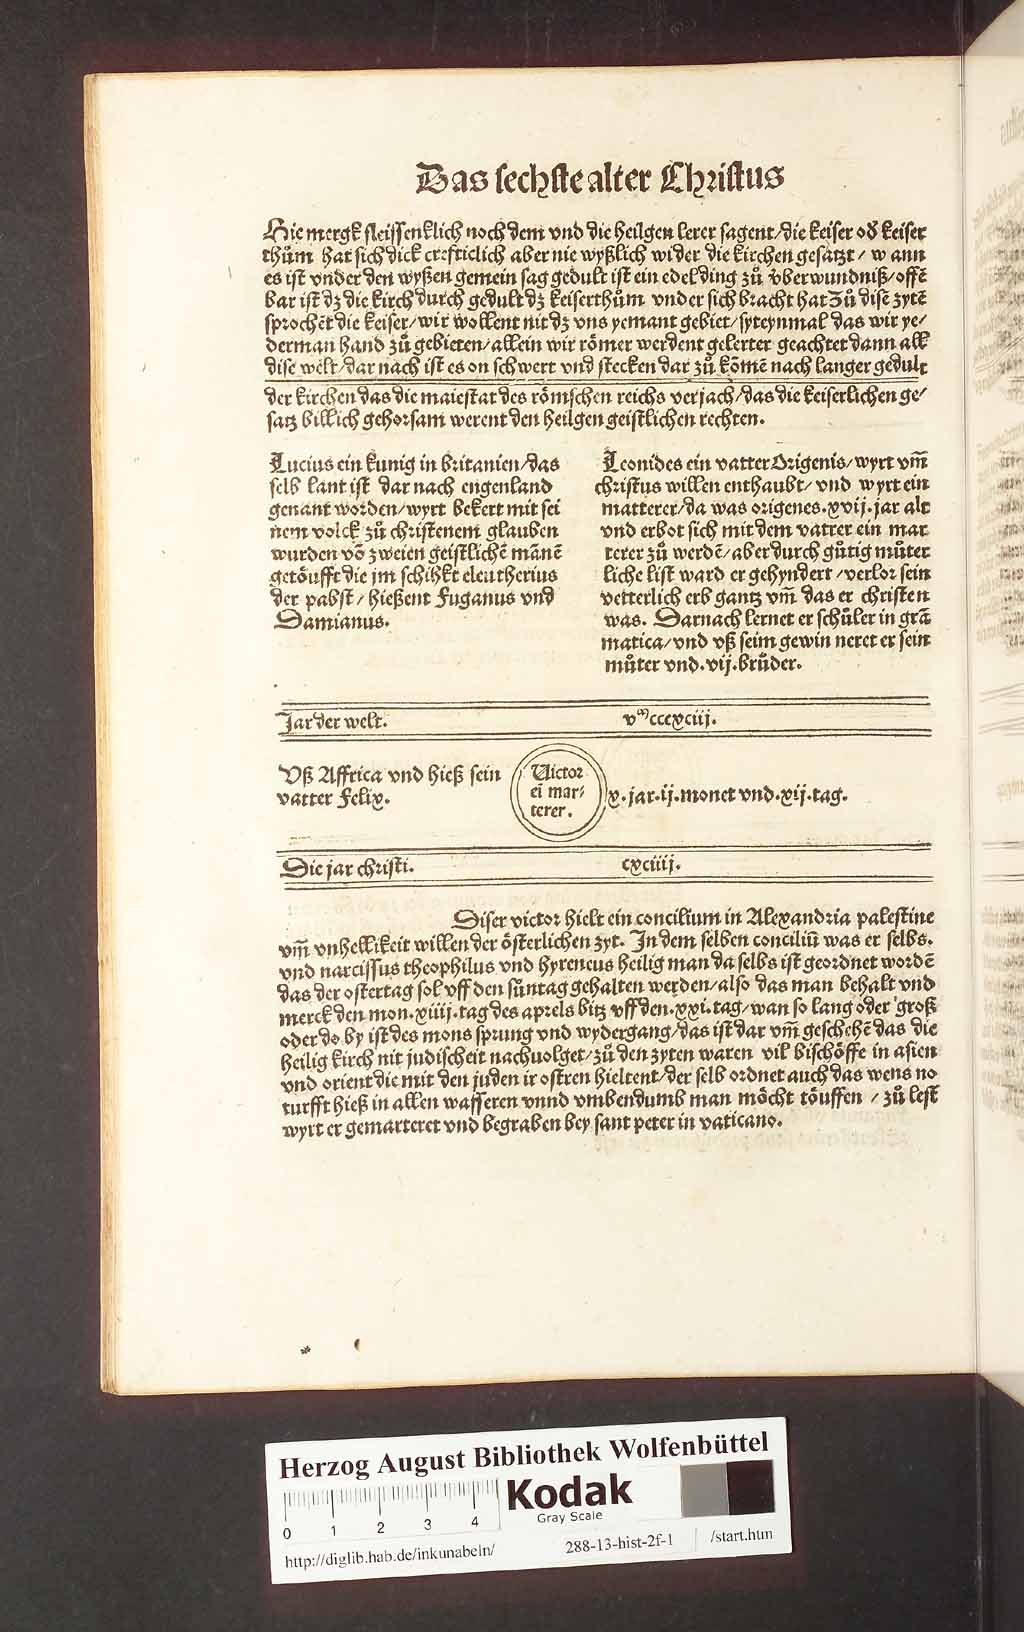 Das sechste alter Christus
Hie mergk fleissenklich noch dem vnd die heilgen lerer sagent/die keiser od̕ keiser
thům hat sich dick crefticlich aber nie wyßlich wider die kirchen gesatzt/wann
es ist vnder den wyßen gemein sag gedult ist ein edel ding zů v̈berwundniß/offē
bar ist dz die kirch durch gedult dz keiserthům vnder sich bracht hat Zů dise zytē
sprochēt die keiser/wir wollent nit dz vns yemant gebiet/syteynmal das wir ye/
derman hand zů gebieten/allein wir römer werdent gelerter geachtet dann all
dise welt/dar nach ist es on schwert vnd stecken dar zů kömē nach langer gedult
der kirchen das die maiestat des römschen reichs verjach/das die keiserlichen ge/
satz billich gehorsam werent den heilgen geistlichen rechten.
Lucius ein kunig in britanien/das
selb lant ist dar nach engenland
genant worden/wyrt bekert mit sei
nem volck zů christenem glauben
wurden vō zweien geistlichē mānē
getöufft die jm schihkt eleutherius
der pabst/hießent Fuganus vnd
Damianus.
Leonides ein vatter Origenis/wyrt vm̄
christus willen enthaubt/vnd wyrt ein
matterer/da was origenes.xvij.jar alt
vnd erbot sich mit dem vatter ein mar
terer zů werdē/aber durch gůtig můter
liche list ward er gehyndert/verlor sein
vetterlich erb gantz vm̄ das er christen
was. Darnach lernet er schůler in grā
matica/vnd vß seim gewin neret er sein
můter vnd.vij.brůder.
Jar der welt. vᵐcccxciij.
Vß Affrica vnd hieß sein
vatter Felix.
Victor
ei mar/
terer.
x.jar.ij.monet vnd.xij.tag.
Die jar christi. cxciiij.
Diser victor hielt ein concilium in Alexandria palestine
vm̄ vnhellikeit willen der österlichen zyt. In dem selben conciliū was er selbs.
vnd narcissus theophilus vnd hyreneus heilig man da selbs ist geordnet wordē
das der ostertag sol vff den sůntag gehalten werden/also das man behalt vnd
merck den mon.xiiij.tag des aprels bitz vff den.xxi.tag/wan so lang oder groß
oder do by ist des mons sprung vnd wydergang/das ist dar vm̄ geschehē das die
heilig kirch nit judischeit nachuolget/zů den zyten waren vil bischöffe in asien
vnd orient die mit den juden ir ostren hieltent/der selb ordnet auch das wens no
turfft hieß in allen wasseren vnnd vmbendumb man möcht töuffen/zů lest
wyrt er gemarteret vnd begraben bey sant peter in vaticano.
Herzog August Bibliothek Wolfenbüttel
Kodak
Gray Scale
0 1 2 3 4
http://diglib.hab.de/inkunabeln/ 288-13-hist-2f-1 /start.htm